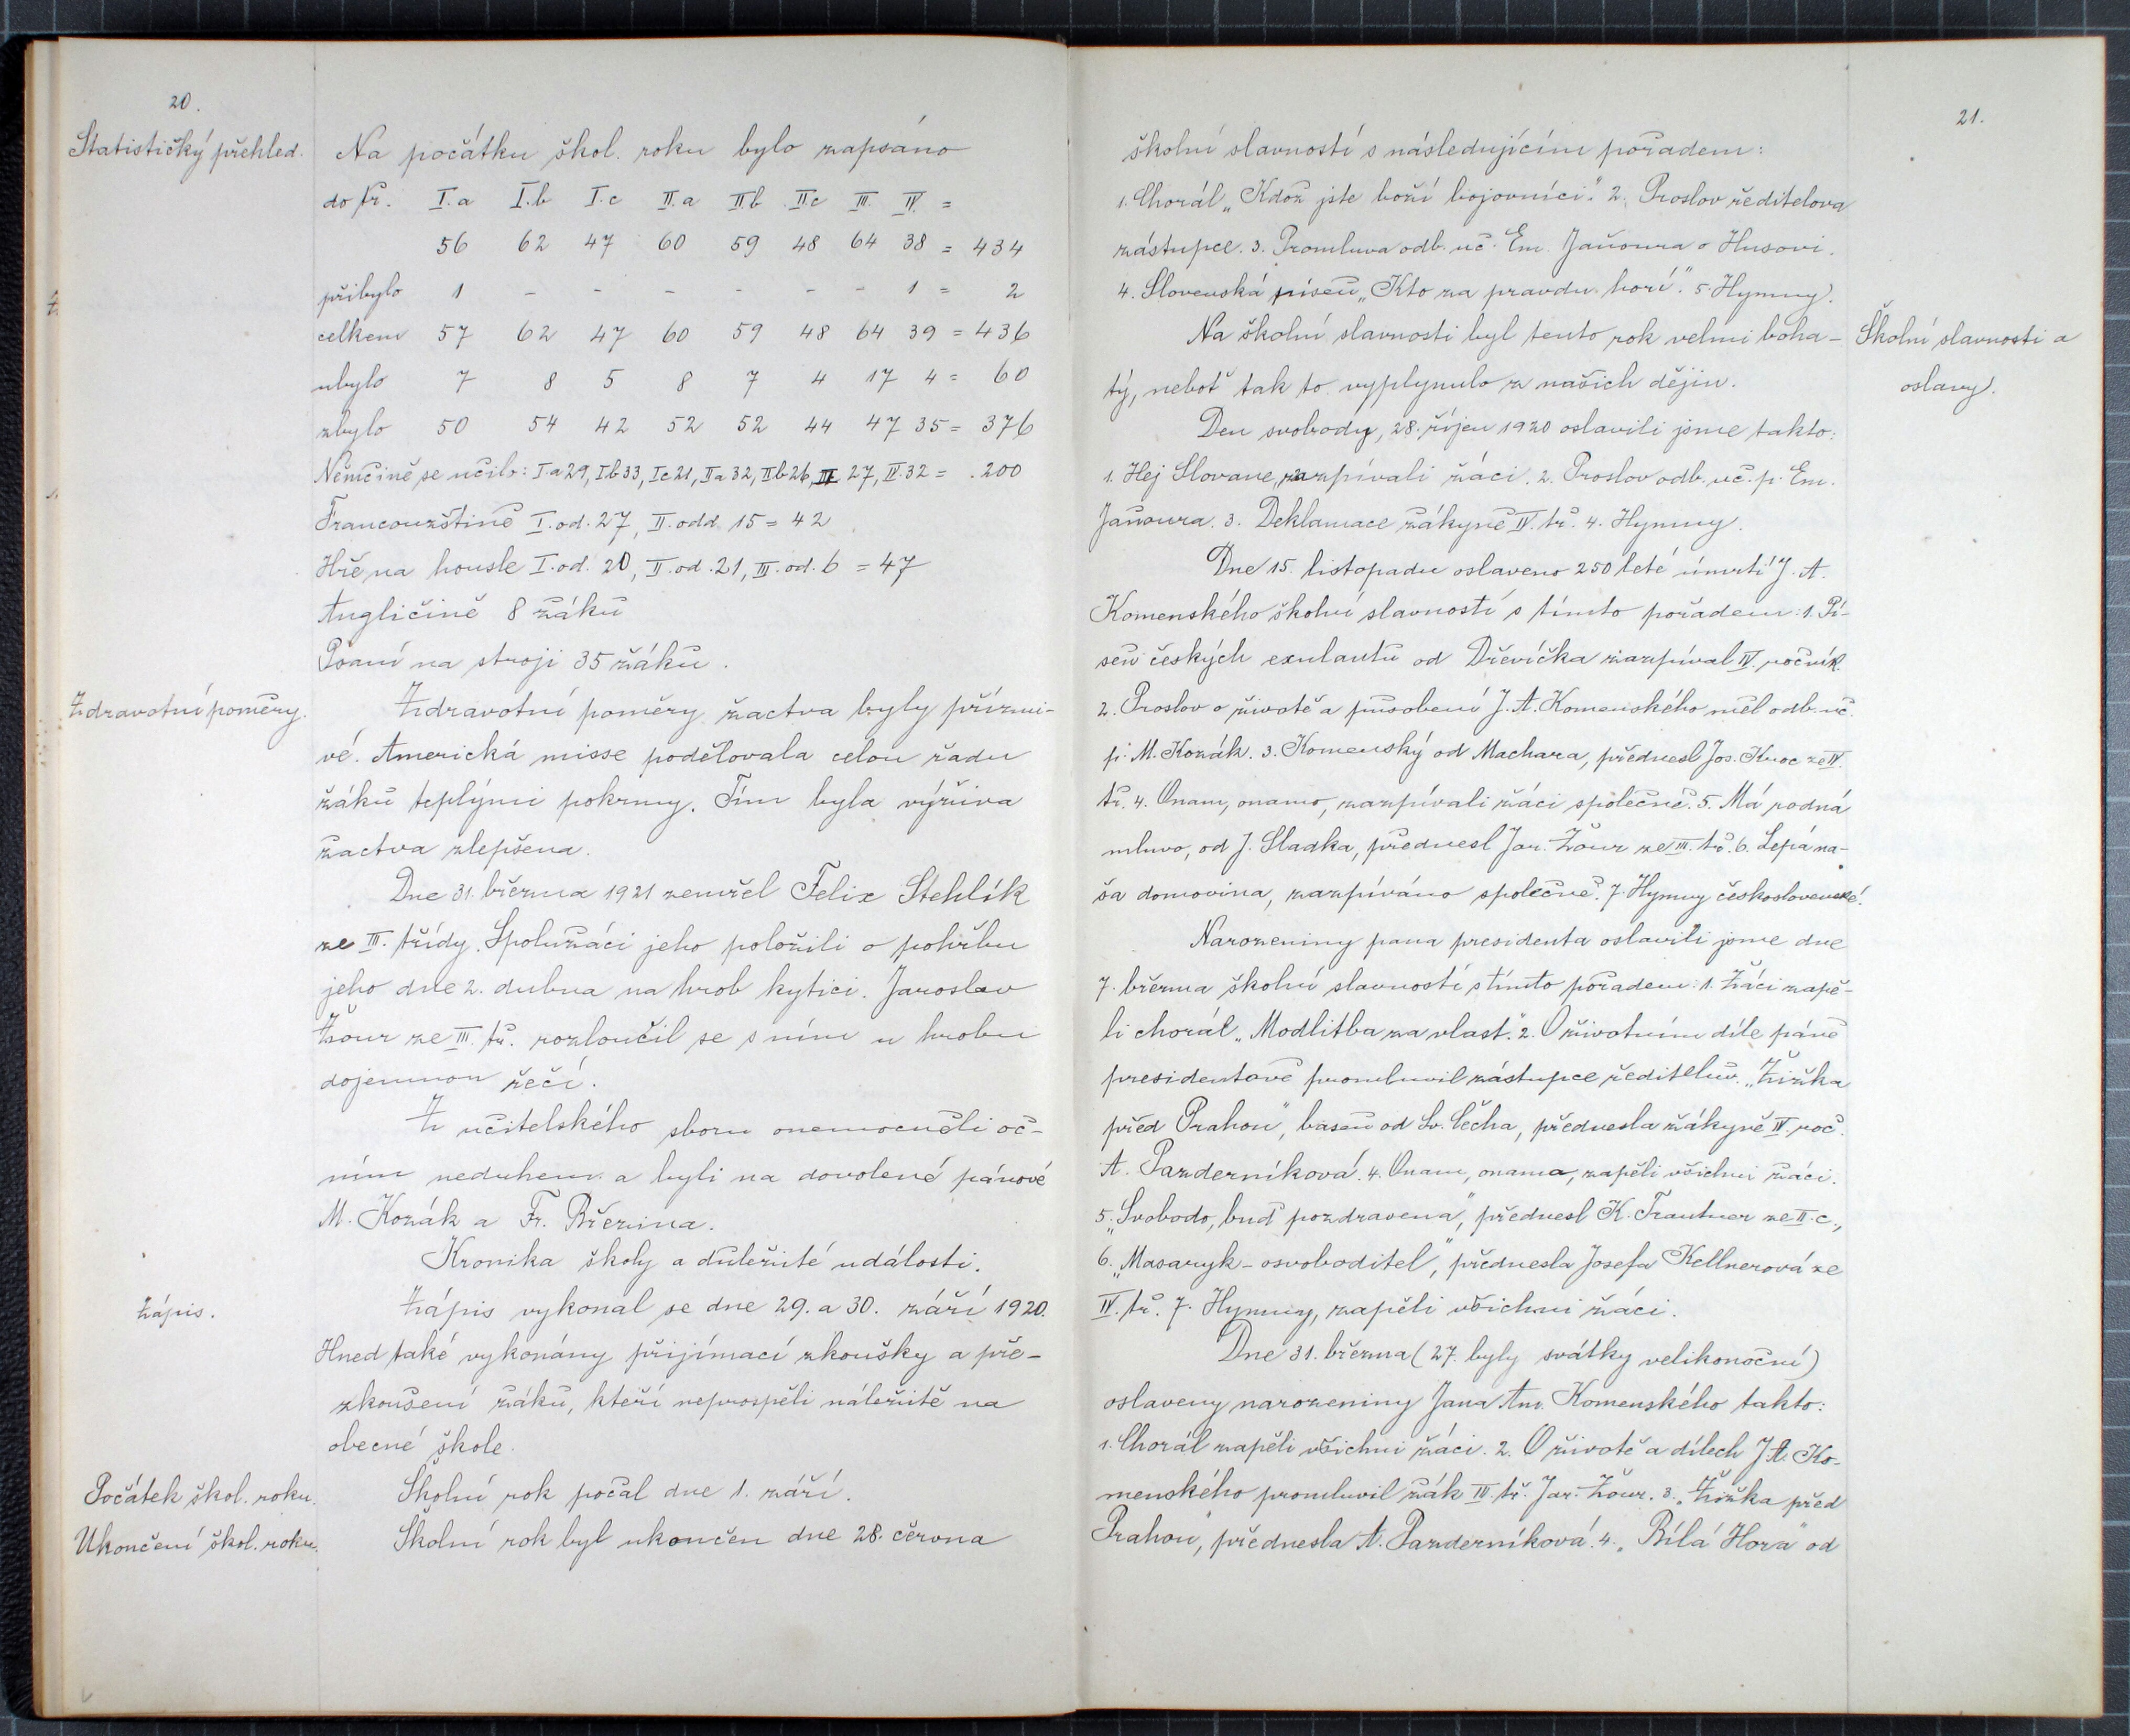 20.
Statistický přehled.
Na počátku škol. roku bylo zapsáno
do tř. I.a I.b I.c II.a II.b II.c III. IV. =
56 62 47 60 59 48 64 38 = 434
přibylo 1 - - - - - - 1 = 2
celkem 57 62 47 60 59 48 64 39 = 436
ubylo 7 8 5 8 7 4 17 4 = 60
zbylo 50 54 42 52 52 44 47 35 = 376
Němčině se učilo: I.a 29, I.b 33, I.c 21, II.a 32, II.b 26, III. 27, IV. 32 = 200
Francouzštině I. od. 27, II. odd. 15 = 42
Hře na housle I. od. 20, II. od. 21, III. od. 6 = 47
Angličině 8 žáků
Psaní na stroji 35 žáků.
Zdravotní poměry.
Zdravotní poměry žactva byly přízni-
vé. Americká misse podělovala celou řadu
žáků teplými pokrmy. Tím byla výživa
žactva zlepšena.
Dne 31. března 1921 zemřel Felix Stehlík
ze III. třídy. Spolužáci jeho položili o pohřbu
jeho dne 2. dubna na hrob kytici. Jaroslav
Žour ze III. tř. rozloučil se s ním u hrobu
dojemnou řečí.
Z učitelského sboru onemocněli oč-
ním neduhem a byli na dovolené pánové
M. Kozák a Fr. Březina.
Kronika školy a důležité události.
Zápis.
Zápis vykonal se dne 29. a 30. září 1920.
Hned také vykonány přijímací zkoušky a pře-
zkoušení žáků, kteří neprospěli náležitě na
obecné škole.
Počátek škol. roku.
Školní rok počal dne 1. září.
Ukončení škol. roku.
Školní rok byl ukončen dne 28. června
21.
školní slavností s následujícím pořadem:
1. Chorál „Kdož jste boží bojovníci". 2. Proslov ředitelova
zástupce. 3. Promluva odb. uč. Em. Jaňoura o Husovi.
4. Slovenská píseň „Kto za pravdu horí". 5. Hymny.
Školní slavnosti a
oslavy.
Na školní slavnosti byl tento rok velmi boha-
tý, neboť tak to vyplynulo z našich dějin.
Den svobody, 28. říjen 1920 oslavili jsme takto:
1. Hej Slované, zazpívali žáci. 2. Proslov odb. uč. p. Em.
Jaňoura. 3. Deklamace žákyně IV. tř. 4. Hymny.
Dne 15. listopadu oslaveno 250 leté úmrtí J. A.
Komenského školní slavností s tímto pořadem: 1. Pí-
seň českých exulantů od Dřevíčka zazpíval IV. ročník.
2. Proslov o životě a působení J. A. Komenského měl odb. uč.
p. M. Kozák. 3. Komenský od Machara, přednesl Jos. Kuoc ze IV.
tř. 4. Onam, onamo, zazpívali žáci společně. 5. Má rodná
mluvo, od J. Sladka, přednesl Jar. Žour ze III. tř. 6. Lepá na-
ša domovina, zazpíváno společně. 7. Hymny československé.
Narozeniny pana presidenta oslavili jsme dne
7. března školní slavností s tímto pořadem: 1. Žáci zapě-
li chorál „Modlitba za vlast." 2. O životním díle páně
presidentově promluvil zástupce ředitelův. „Žižka
před Prahou", báseň od Sv. Čecha, přednesla žákyně IV. roč.
A. Pazderníková. 4. Onam, onamo, zapěli všichni žáci.
5. „Svobodo, buď pozdravena", přednesl K. Trautner ze II. c.,
6. „Masaryk - osvoboditel", přednesla Josefa Kellnerová ze
IV. tř. 7. Hymny, zapěli všichni žáci.
Dne 31. března (27. byly svátky velikonoční)
oslaveny narozeniny Jana Am. Komenského takto:
1. Chorál zapěli všichni žáci. 2. O životě a dílech J. A. Ko-
menského promluvil žák III. tř. Jar. Žour. 3. „Žižka před
Prahou", přednesla A. Pazderníková. 4. „Bílá Hora" od